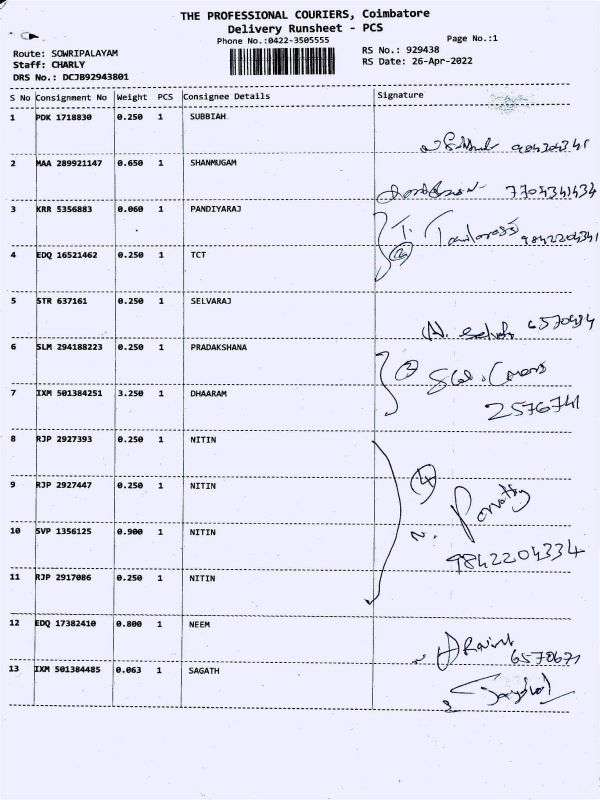 THE PROFESSIONAL COURIERS, Coimbatore
Delivery Runsheet - PCS
Phone No.:0422-3505555
Page No.:1
Route: SOWRIPALAYAM
Staff: CHARLY
DRS No.: DCJB92943801
RS No.: 929438
RS Date: 26-Apr-2022
S No Consignment No Weight PCS Consignee Details Signature
1 PDK 1718830 0.250 1 SUBBIAH
2 MAA 289921147 0.650 1 SHANMUGAM
7704341434
3 KRR 5356883 0.060 1 PANDIYARAJ
9842204341
4 EDQ 16521462 0.250 1 TCT
5 STR 637161 0.250 1 SELVARAJ
6 SLM 294188223 0.250 1 PRADAKSHANA
7 IXM 501384251 3.250 1 DHAARAM
2576741
8 RJP 2927393 0.250 1 NITIN
9 RJP 2927447 0.250 1 NITIN
4
10 SVP 1356125 0.900 1 NITIN
9842204334
11 RJP 2917086 0.250 1 NITIN
12 EDQ 17382410 0.800 1 NEEM
6570671
13 IXM 501384485 0.063 1 SAGATH